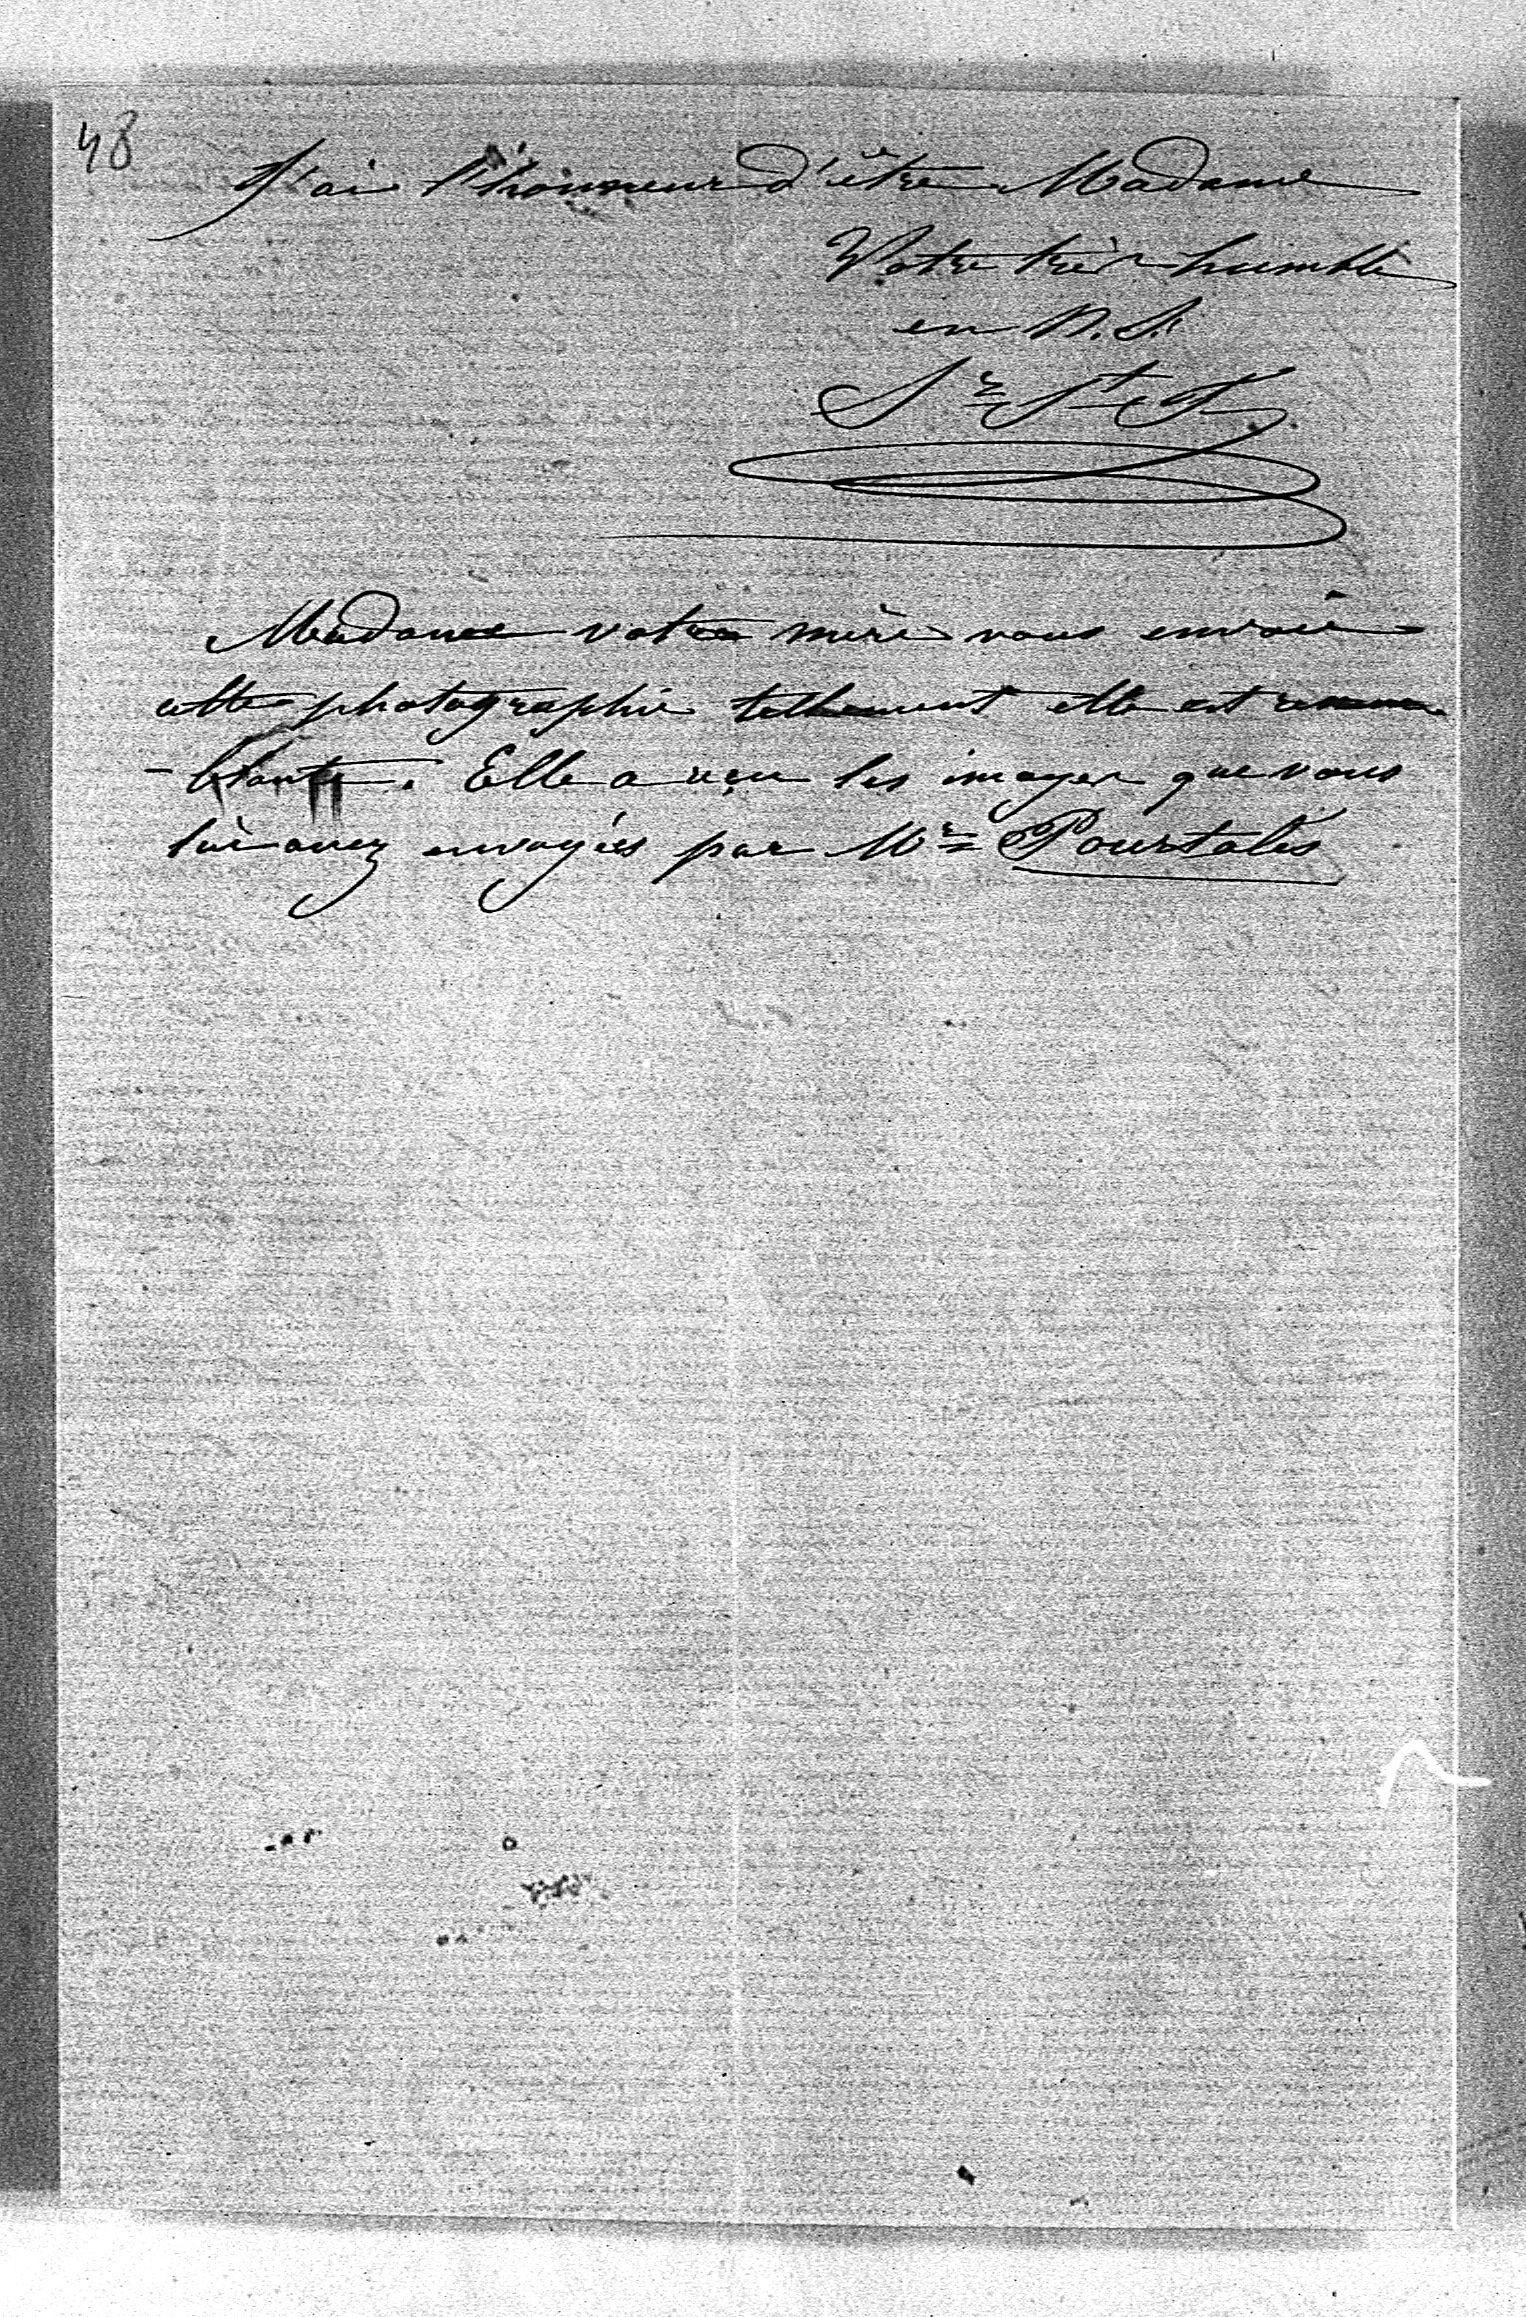 48
J'ai l'honneur d'être Madame
Votre très humble
en N. S.
Sr St F
Madame votre mère vous envoie
cette photographie tellement elle est ressem
- blante. Elle a reçu les images que vous
lui avez envoyées par Mr Pourtalès